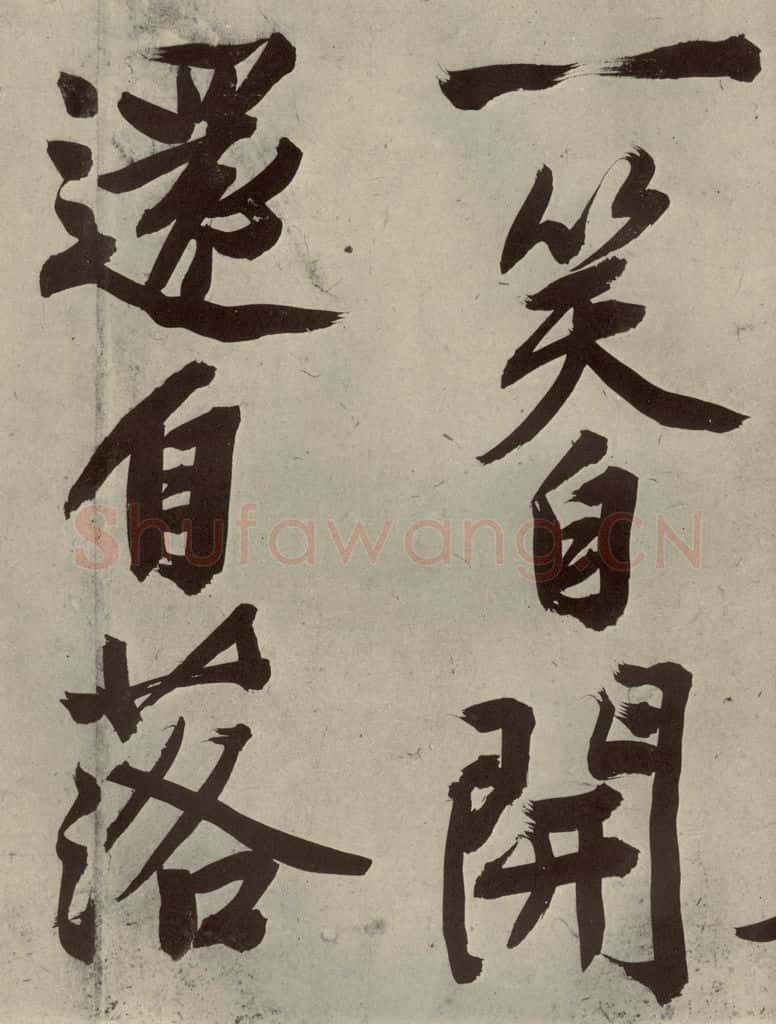 一笑自開
還自落
Shufawang.CN